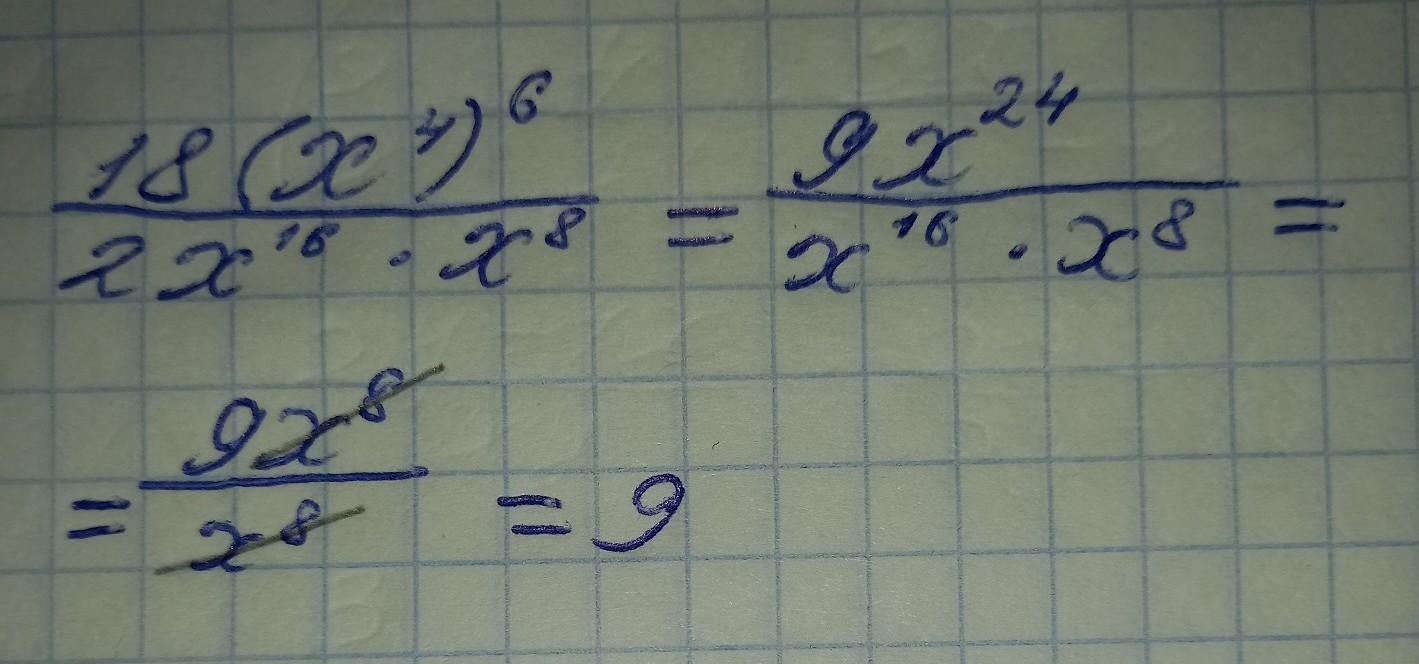 18(x⁴)⁶ / 2x¹⁶ · x⁸ = 9x²⁴ / x¹⁶ · x⁸ =
= 9x⁸ / x⁸ = 9